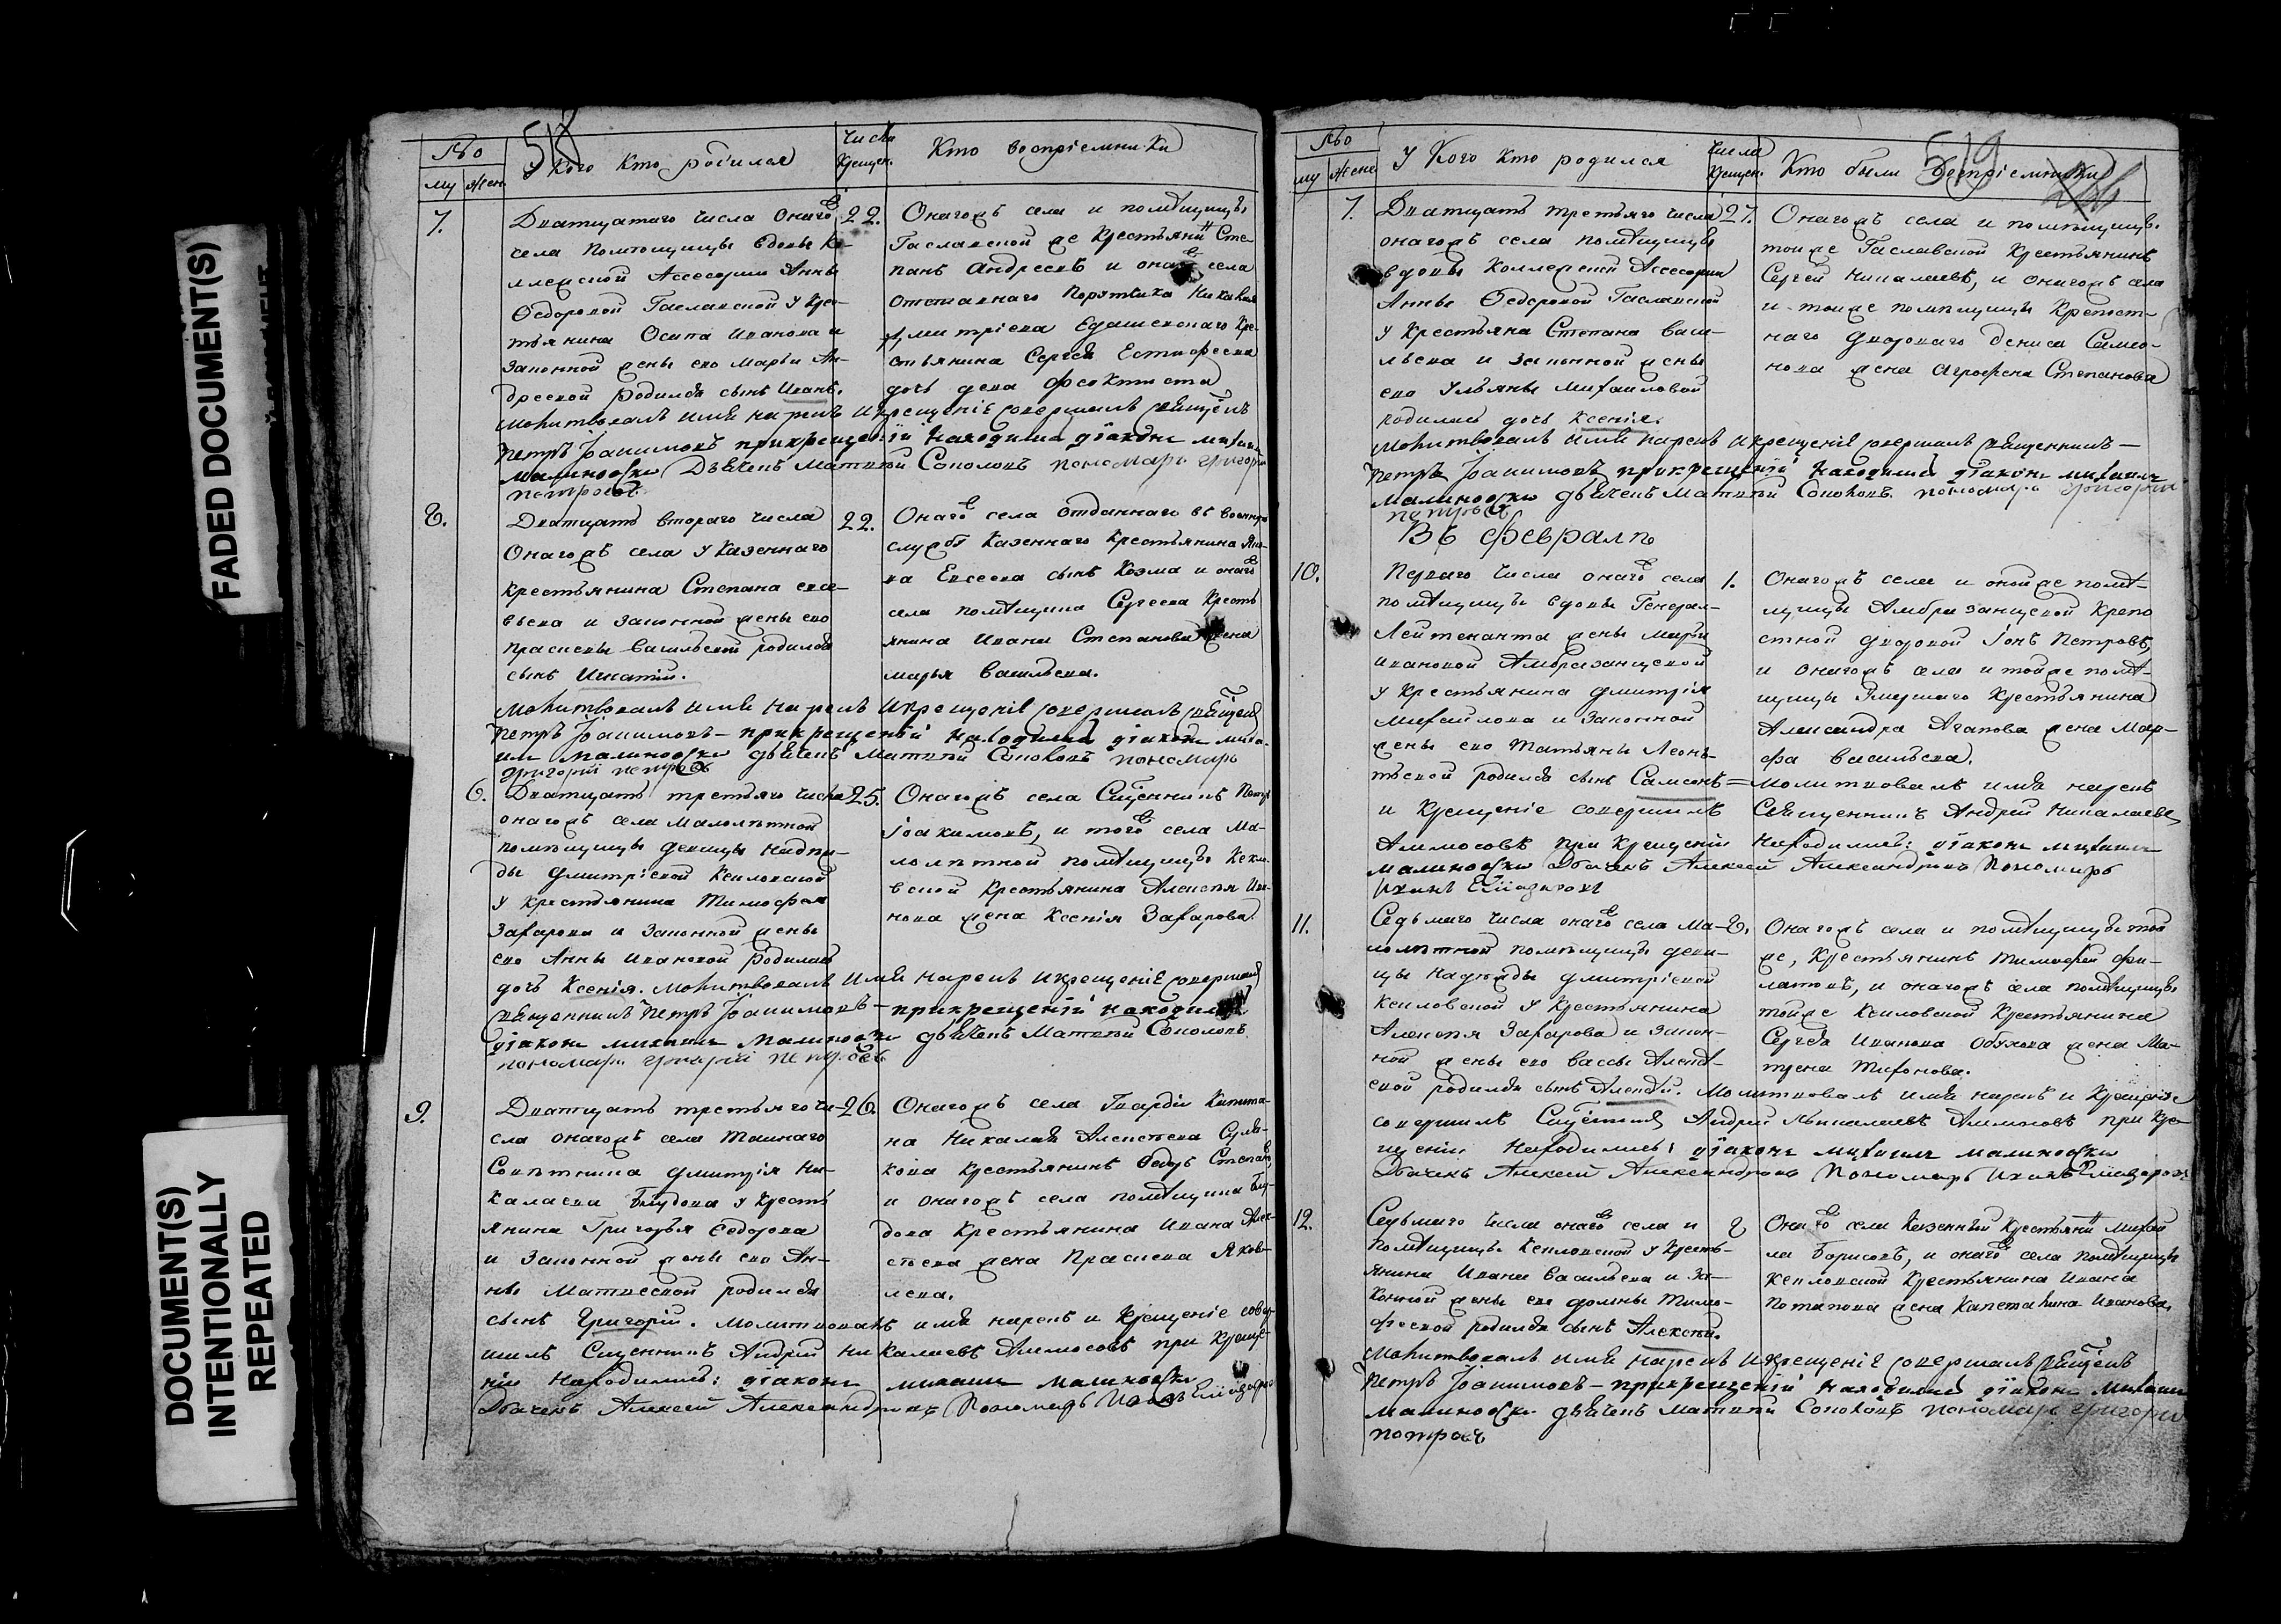 FADED DOCUMENT(S)
DOCUMENT(S)
INTENTIONALLY
REPEATED
518
№
му жен
У кого кто родился
числа
крещен.
Кто восприемники
7.
Дватцатаго числа онаго
села помѣщицы вдовы Ко-
лежской Ассесорши Анны
Федоровой Гаславской у кре-
тьянина Осипа Иванова и
законной жены ево Марьи Ан-
дреевой родился сынъ Иванъ.
22.
Онагожъ села и помѣщицы
Гаславской же крестьянин Сте-
панъ Андреевъ и онаго села
отставнаго Порутчика
Дмитриева крe-
стьянина Сергея Естифеева
дочь девка Феоктиста
молитвовалъ имя нарекъ и крещение совершалъ священъ
Петръ Iоакимовъ при крещении находились дiаконъ михаилъ
малиновски дьячекъ Матвей Соколовъ пономарь григории
петровъ
8.
Дватцать втораго числа
Онагожъ села у казеннаго
крестьянина Степана евсе-
вьева и законной жены ево
Прасковьи васильевой родился
сынъ Игнатiй.
22.
Онаго села отданнаго въ военную
службу казеннаго крестьянина Яко-
ва Евсеева сынъ Козма и онаго
села помѣщика Сергеева кресть
янина Ивана Степанова жена
марья васильева.
молитвовалъ имя нарекъ и крещение совершалъ священ
Петръ Iоакимовъ при крещении находились дiаконъ миха-
илъ малиновски дьячекъ Матвей Соколовъ пономарь
григорiй петровъ
6.
Дватцать третьяго числа
онагожъ села малолѣтной
помѣщицы девицы Надѣж-
ды Дмитрiевой Кеиловской
у крестьянина Тимофея
Захарова и законной жены
ево Анны Ивановой родилась
дочь Ксенiя. молитвовалъ имя нарекъ и крещение совершалъ
25.
Онагожъ села Священникъ Петръ
Iоакимовъ, и того села Ма-
лолѣтной помѣщицы Кеило-
вской крестьянина Алексѣя Ива-
нова жена Ксенiя Захарова
священникъ Петръ Iоакимовъ при крещении находились
дiаконъ михаилъ малиновски дьячекъ Матвей Соколовъ
пономарь григорiй петровъ
9.
Дватцать третьяго чи-
сла онагожъ села Тайнаго
Советника Дмитрiя Ни-
калаева Блудова у кресть
янина Григорья Федорова
и законной жены ево Ан-
ны Матвеевой родился
сынъ Григорiй. молитвовалъ имя нарекъ и крещенiе совер-
26.
Онагожъ села Гвардiи Капита-
на Николая Алексѣева
крестьянинъ Федоръ Степанов
и онагожъ села помѣщика Блу-
дова крестьянина Ивана Алек-
сѣева жена Прасковья Яков-
лева.
шилъ Священникъ Андрей Никалаевъ Алмосовъ при креще-
нiи находились: дiаконъ михаилъ малиновски
дьячекъ Алексей Александровъ Пономарь Иванъ Елиазаровъ
519
№
му жене
У Кого кто родился
числа
крещен.
Кто были восприемники
7.
Дватцать третьяго числа
онагожъ села помѣщицы
вдовы Коллежской Ассесорши
Анны Федоровой Гаславской
у крестьяна Степана васи-
льева и законной жены
ево Ульяны Михаиловой
родилась дочь Ксенiя.
27.
Онагожъ села и помѣщицы
тойже Гаславской крестьянинъ
Сергей Никалаевъ, и онагожъ села
и тойже помѣщицы крѣпост-
наго двороваго Дениса Самсо-
нова жена Агрофена Степанова
молитвовалъ имя нарекъ и крещение совершалъ священникъ
Петръ Iоакимовъ при крещении находились дiаконъ михаилъ
малиновски дьячекъ Матвей Соколовъ пономарь григории
петровъ
Въ февралѣ
10.
Перваго числа онаго села
помѣщицы вдовы Генерал-
Лейтенанта жены Марьи
Ивановой Амбразанцевой
у крестьянина Дмитрiя
Михаилова и законной
жены ево Татьяны Леонь-
тьевой родился сынъ Самсонъ = молитвовалъ имя нарекъ
1.
Онагожъ села и онойже помѣ-
щицы Амбразанцевой крѣпо
стной дворовой Iонъ Петровъ,
и онагожъ села и тойже помѣ-
щицы умершаго крестьянина
Александра Агапова жена Мар-
фа васильева.
и крещенiе совершилъ Священникъ Андрей Никалаевъ
Алмосовъ при крещенiи находились: дiаконъ михаилъ
малиновски дьячекъ Алексей Александровъ Пономарь
Иванъ Елиазаровъ
11.
Седьмаго числа онаго села Ма-
лолѣтной помѣщицы деви-
цы Надѣжды Дмитрiевой
Кеиловской у крестьянина
Алексѣя Захарова и закон-
ной жены ево Вассы Алексѣ-
евой родился сынъ Алексѣй. Молитвовалъ имя нарекъ и крещенiе
8.
Онагожъ села и помѣщицы той
же, крестьянинъ Тимофей Фи-
латовъ, и онагожъ села помѣщицы
тойже Кеиловской крестьянина
Сергѣя Иванова Обухова жена Ма-
трена Тихонова.
совершилъ Священникъ Андрей Никалаевъ Алмосовъ при кре-
щенiи находились: дiаконъ михаилъ малиновски
дьячекъ Алексей Александровъ Пономарь Иванъ Елиазаровъ
12.
Седьмаго числа онаго села и
помѣщицы Кеиловской у кресть-
янина Ивана васильева и за-
конной жены ево Домны Тимо-
феевой родился сынъ Алексѣй.
8
Онаго села казенный крестьянин Михаи
ла Борисовъ, и онаго села помѣщицы
Кеиловской крестьянина Ивана
Потапова жена Капеталина Иванова.
молитвовалъ имя нарекъ и крещение совершалъ священъ
Петръ Iоакимовъ при крещении находились дiаконъ михаилъ
малиновски дьячекъ Матвей Соколовъ пономарь григории
петровъ